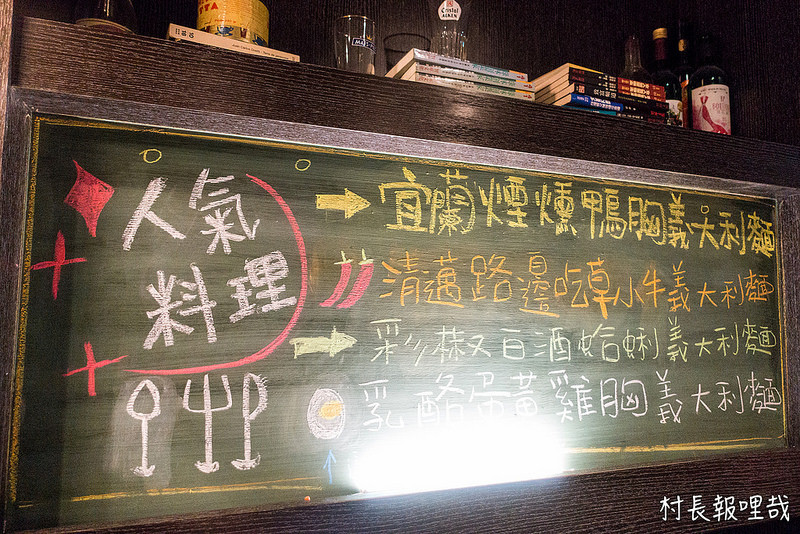 Cristal
ALKEN
人氣
料理
宜蘭煙燻鴨胸義大利麵
清邁路邊吃草小牛義大利麵
彩椒白酒蛤蜊義大利麵
乳酪蛋黃雞胸義大利麵
村長報哩哉